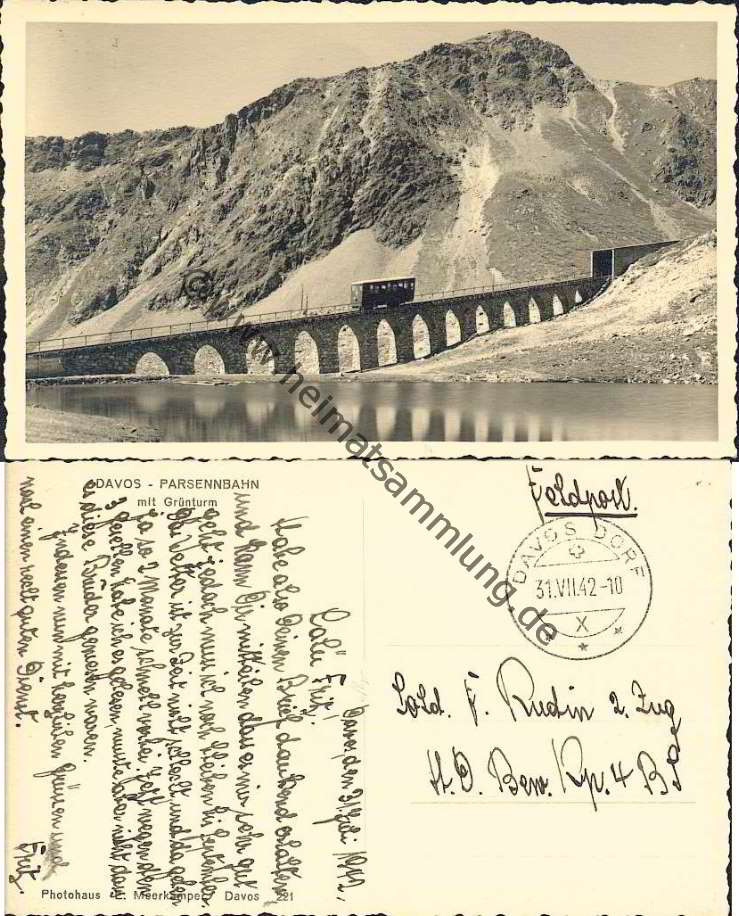 © www.heimatsammlung.de
DAVOS - PARSENNBAHN
mit Grünturm
Davos, den 31. Juli 1942.
Salü Fritz!
Habe also Deinen Brief dankend erhalten
und kann Dir mitteilen dass es mir sehr gut
geht jedoch muss ich noch bleiben bis September
das Wetter ist zur Zeit nicht schlecht und da gehen
ja so 2 Monate schnell vorbei. Jetzt wegen den
3 Gesellen habe ich es gelesen, wusste aber nicht dass
es diese Brüder gewesen waren.
Indessen nun mit herzlichen Grüssen und
noch einen recht guten Dienst.
Fritz
Photohaus E. Meerkämper Davos 221
Feldpost.
DAVOS DORF
31.VII.42-10
X
Sold. F. Rudin 2. Zug
H.D. Bew. Kp. 4 BS